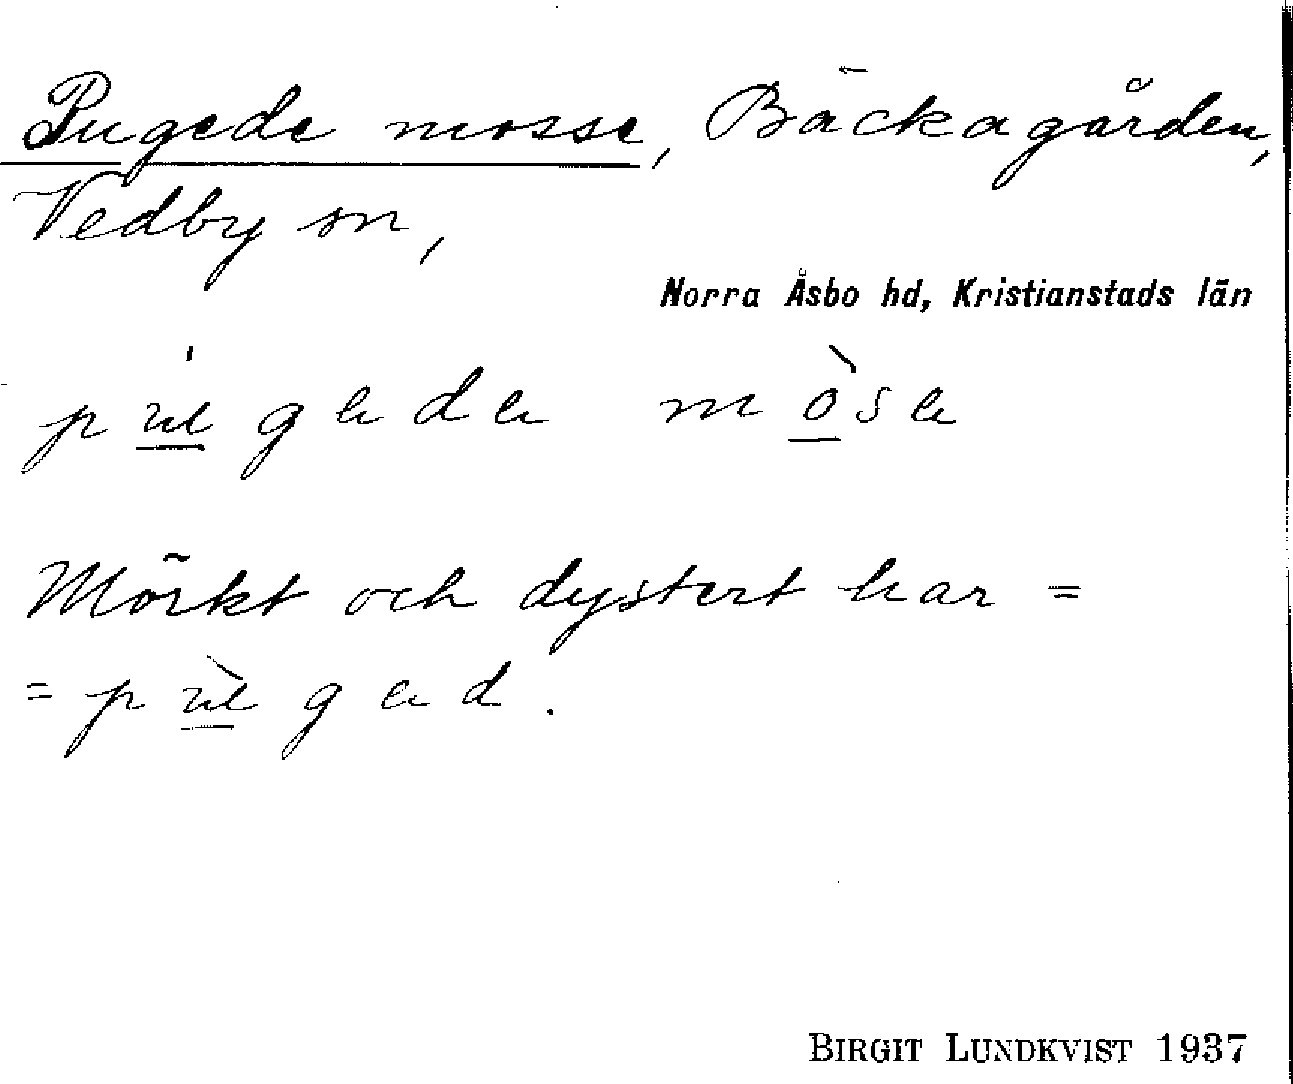 Pugede mosse, Bäckagården,
Vedby sn,
Norra Åsbo hd, Kristianstads län
pu̲̍gədə mò̲sə
Mörkt och dystert här =
= pù̲gəd.
BIRGIT LUNDKVIST 1937